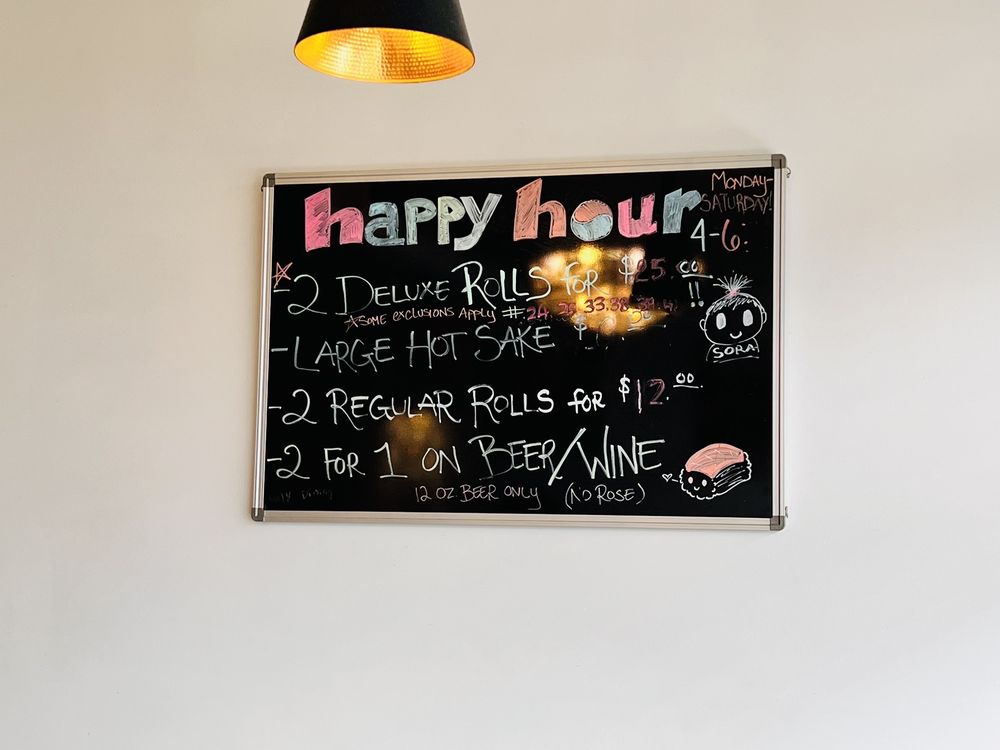 happy hour
MONDAY-
SATURDAY!
4-6:
-2 DELUXE ROLLS for $25.00
!!
*SOME EXCLUSIONS APPLY #.24. 33.38.
-LARGE HOT SAKE $
SORA
-2 REGULAR ROLLS for $12.00.
-2 FOR 1 ON BEER/WINE
12 OZ. BEER ONLY (NO ROSE)